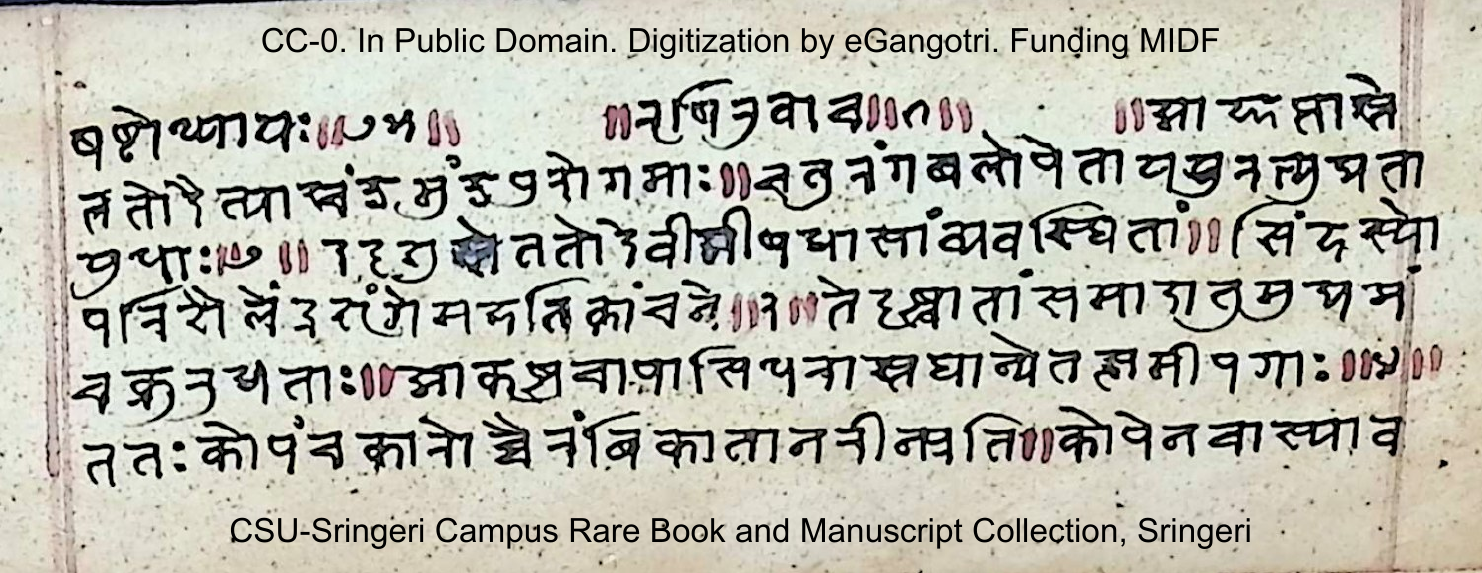 CC-0. In Public Domain. Digitization by eGangotri. Funding MIDF
षष्टोध्यायः॥७५॥ ॥ऋषिरुवाच॥१॥ ॥आज्ञप्तास्ते
ततोदैत्याश्चंडमुंडपुरोगमाः॥चतुरंगबलोपेताययुरत्युद्यता
युधाः॥१॥ददृशुस्तेततोदेवीमीषद्धासांव्यवस्थितां॥सिंहस्यो
परिशैलेंद्रशृंगेमहतिकांचने॥२॥तेदृष्ट्वातांसमादातुमुद्यमं
चक्रुरुद्यताः॥आकृष्टचापासिधरास्तथान्येतत्समीपगाः॥३॥
ततःकोपंचकारोच्चैरंबिकातानरीन्प्रति॥कोपेनचास्याव
CSU-Sringeri Campus Rare Book and Manuscript Collection, Sringeri